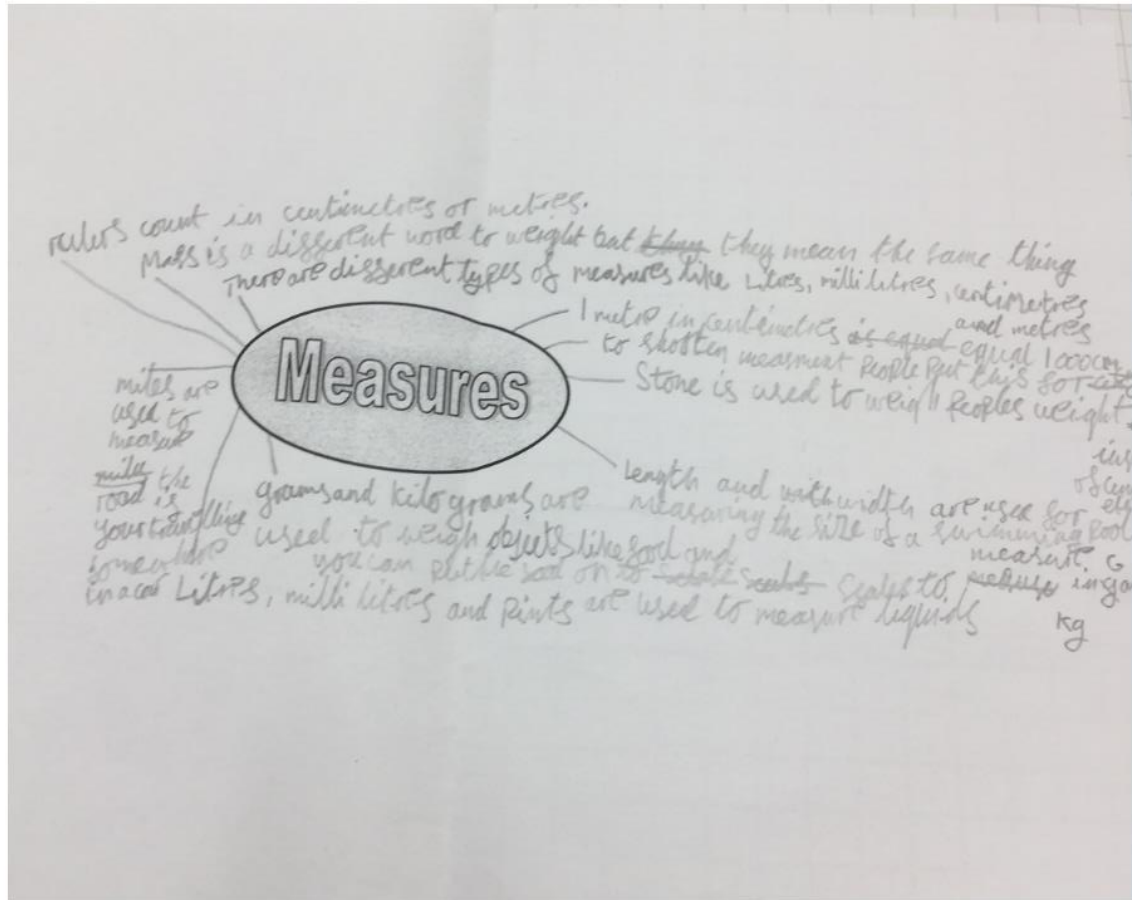 rulers count in centimetres or metres.
Mass is a different word to weight but they they mean the same thing
There are different types of measures like Litres, milli litres, centimetres
and metres
Measures
1 metre in centimetres is equal equal 1000cm
to shotten measment People put this for
Stone is used to weigh Peoples weight.
Length and with width are used for
measuring the size of a swimming pool
miles are
used to
measure
miles the
road is
your travelling
somewhere
in a car
grams and kilograms are
used to weigh objects like food and
you can put the food on to scales to
measure. G
in
kg
Litres, milli litres and Pints are used to measure liquids